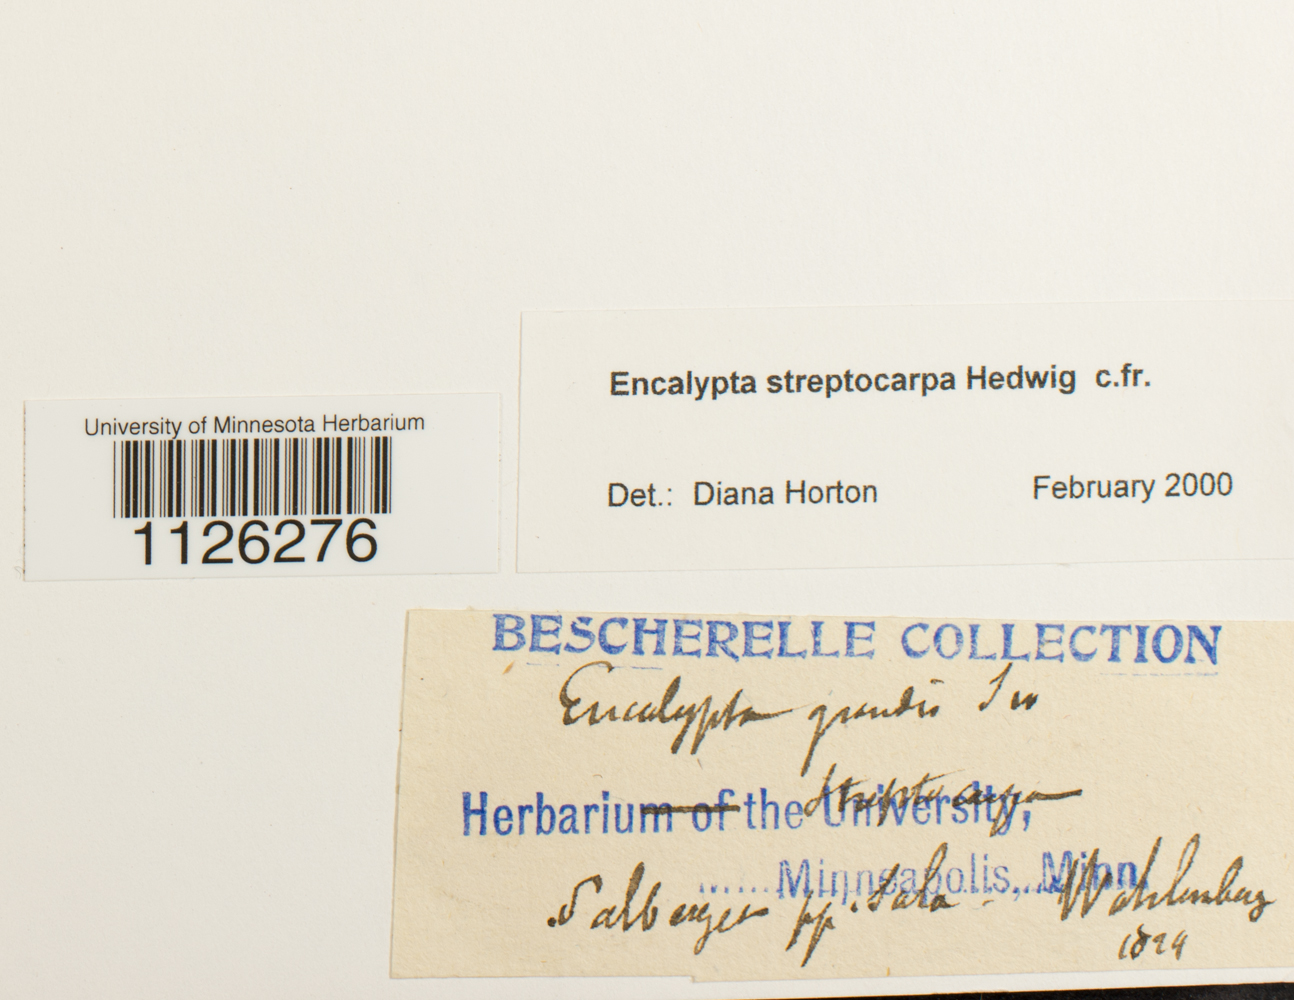 University of Minnesota Herbarium
1126276
Encalypta streptocarpa Hedwig c.fr.
Det.: Diana Horton February 2000
BESCHERELLE COLLECTION
Encalypta grandis Sw
streptocarpa
Herbarium of the University,
Minneapolis, Minn.
pp. Sala - Wahlenberg